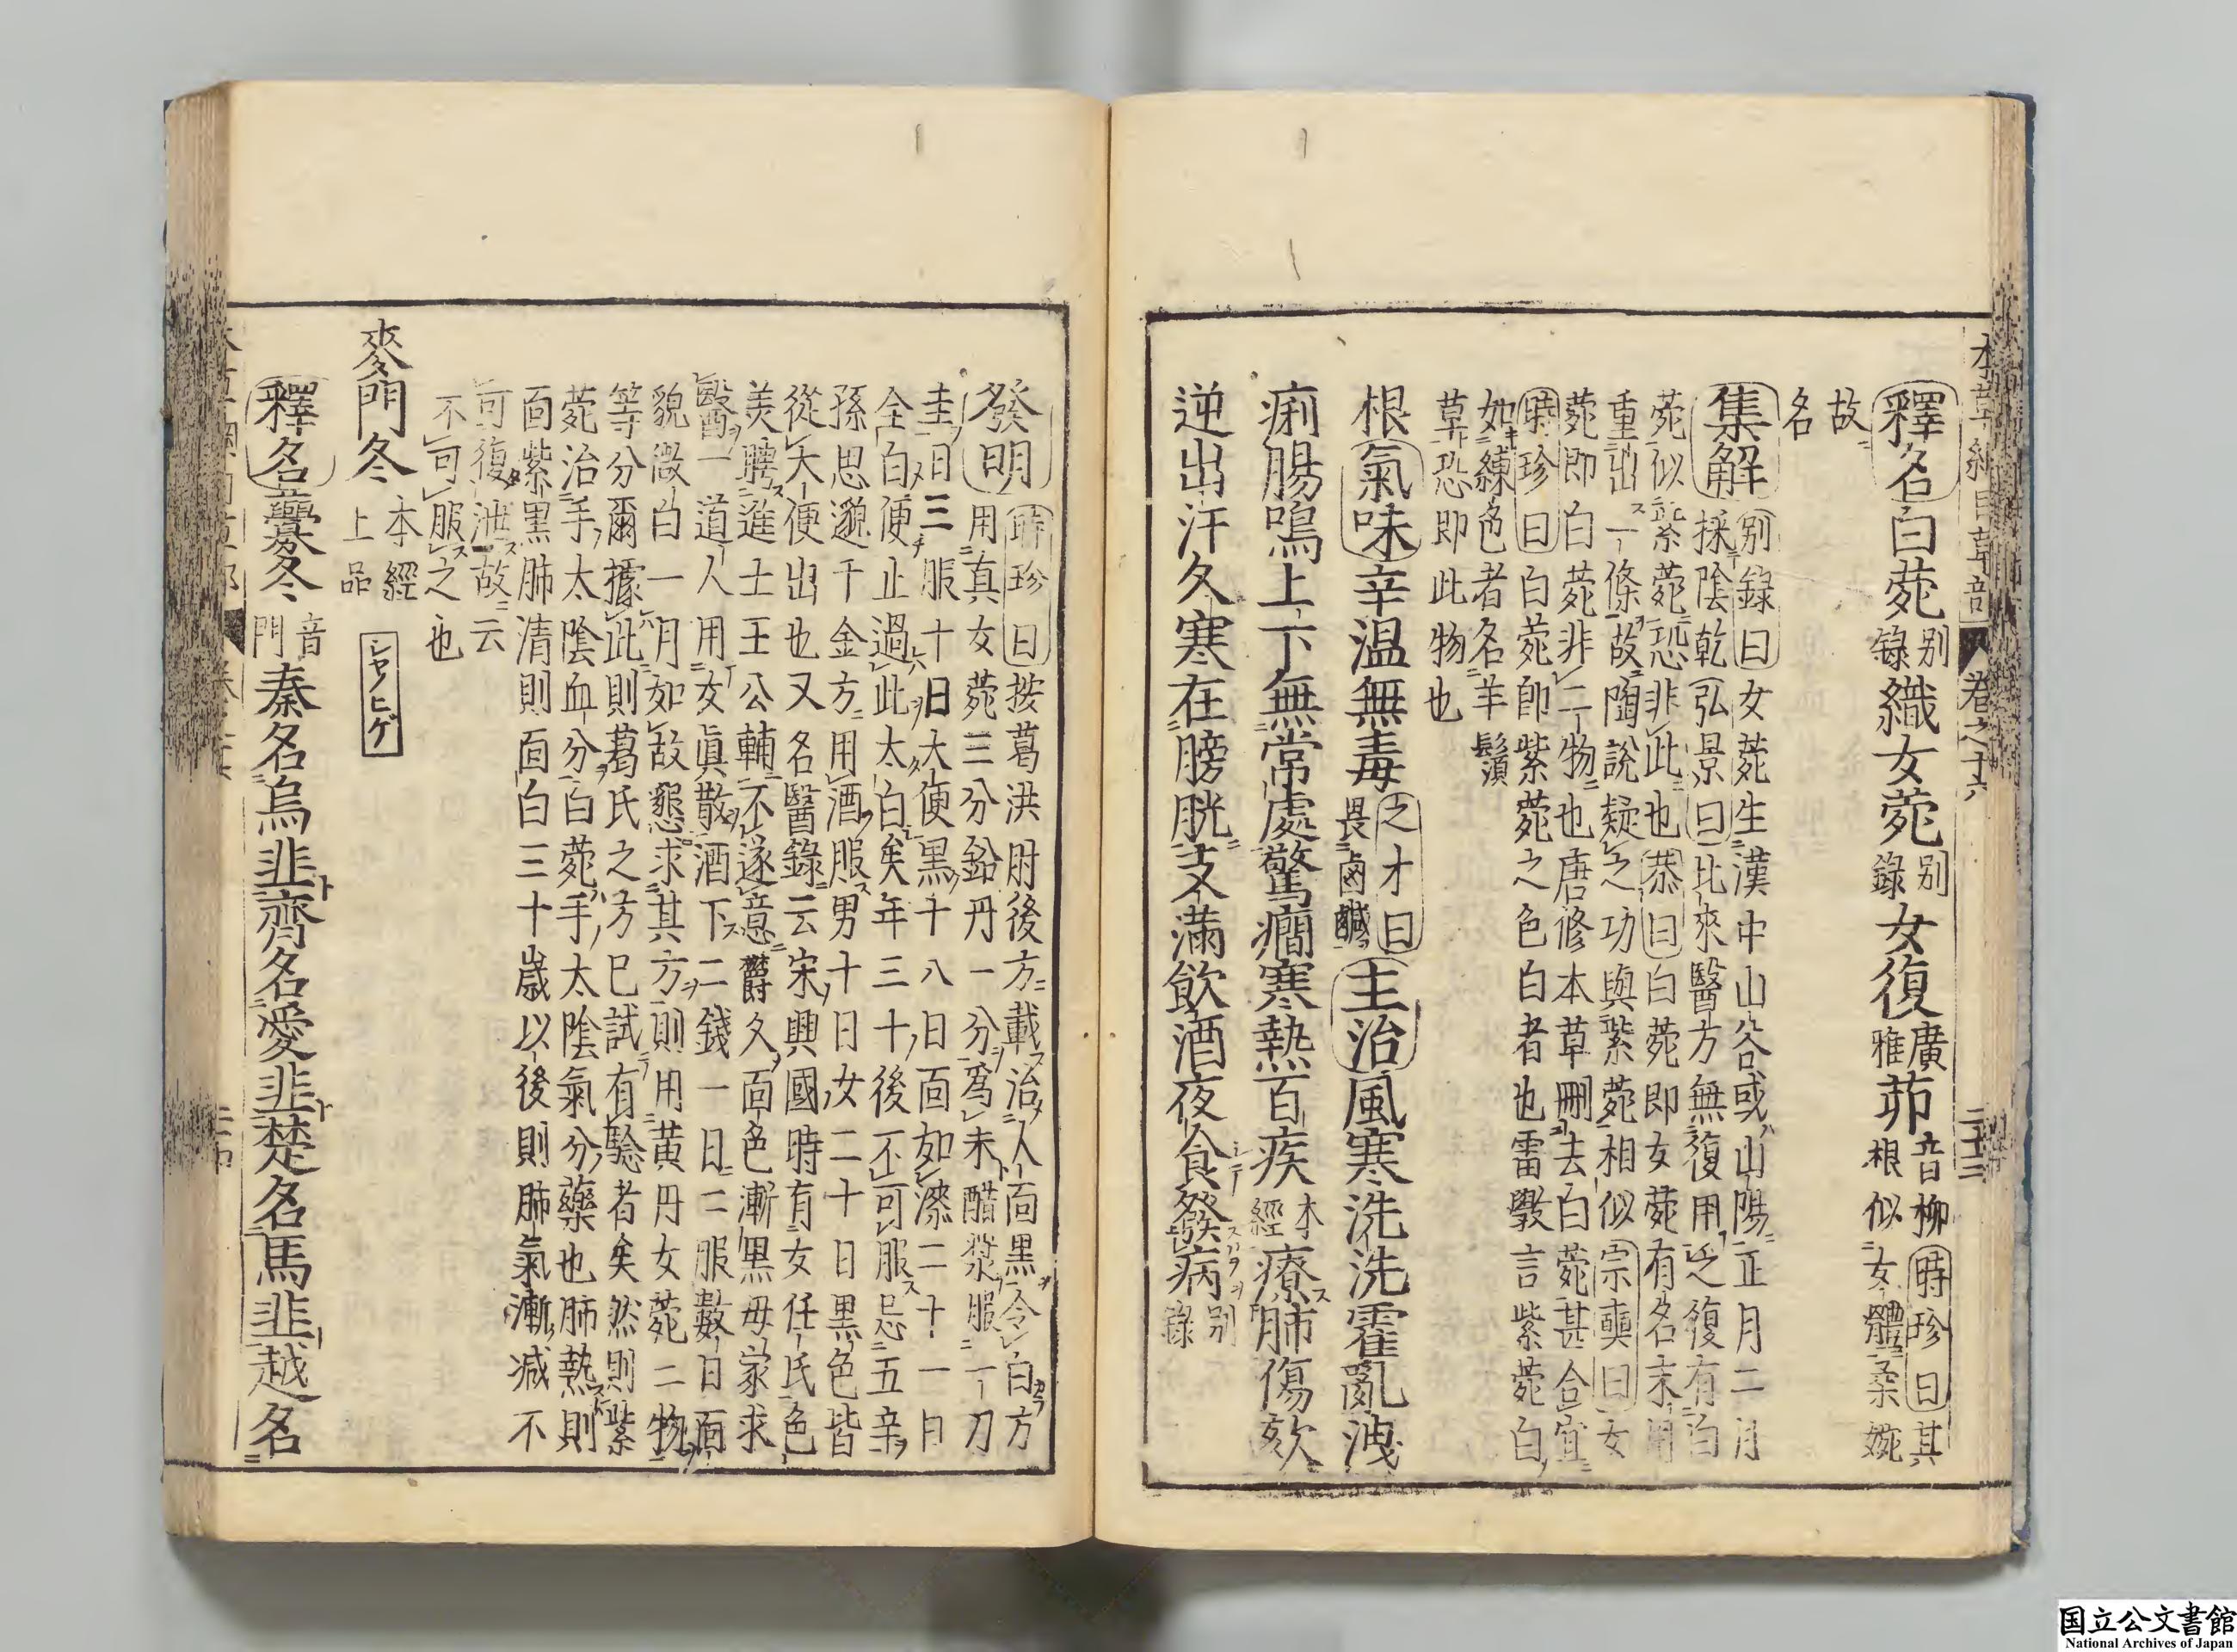 本草綱目草部 卷之十六 二十三
釋名白菀別錄織女菀別錄女復廣雅茆音柳根似女體柔婉時珍曰其
故
名
集解別錄曰女菀生漢中山谷或山陽正月二月
採陰乾弘景曰比來醫方無復用之復有白
菀似紫菀恐非此也恭曰白菀即女菀有名未用
重出一條故陶說疑之功與紫菀相似宗奭曰女
菀即白菀非二物也唐修本草刪去白菀甚合宜
時珍曰白菀即紫菀之色白者也雷斅言紫菀白
如練色者名羊鬚
草恐即此物也
根氣味辛溫無毒之才曰畏鹵鹹主治風寒洗洗霍亂洩
痢腸鳴上下無常處驚癇寒熱百疾本經療肺傷欬
逆出汗久寒在膀胱支滿飲酒夜食發病別錄
發明時珍曰按葛洪肘後方載治人面黑令白方
用真女菀三分鉛丹一分為末醋漿服一刀
圭日三服十日大便黑十八日面如漆二十一日
全白便止過此太白矣年三十後不可服忌五辛
孫思邈千金方用酒服男十日女二十日黑色皆
從大便出也又名醫錄云宋興國時有女任氏色
美聘進士王公輔不遂意鬱久面色漸黑母家求
醫一道人用女真散酒下二錢一日二服數日面
貌微白一月如故懇求其方則用黃丹女菀二物
等分爾據此則葛氏之方已試有驗者矣然則紫
菀治手太陰血分白菀手太陰氣分藥也肺熱則
面紫黑肺清則面白三十歲以後則肺氣漸減不
可復泄故云
不可服之也
麥門冬本經上品 シヤノヒゲ
釋名虋冬音門秦名烏韭齊名愛韭楚名馬韭越名
国立公文書館
National Archives of Japan